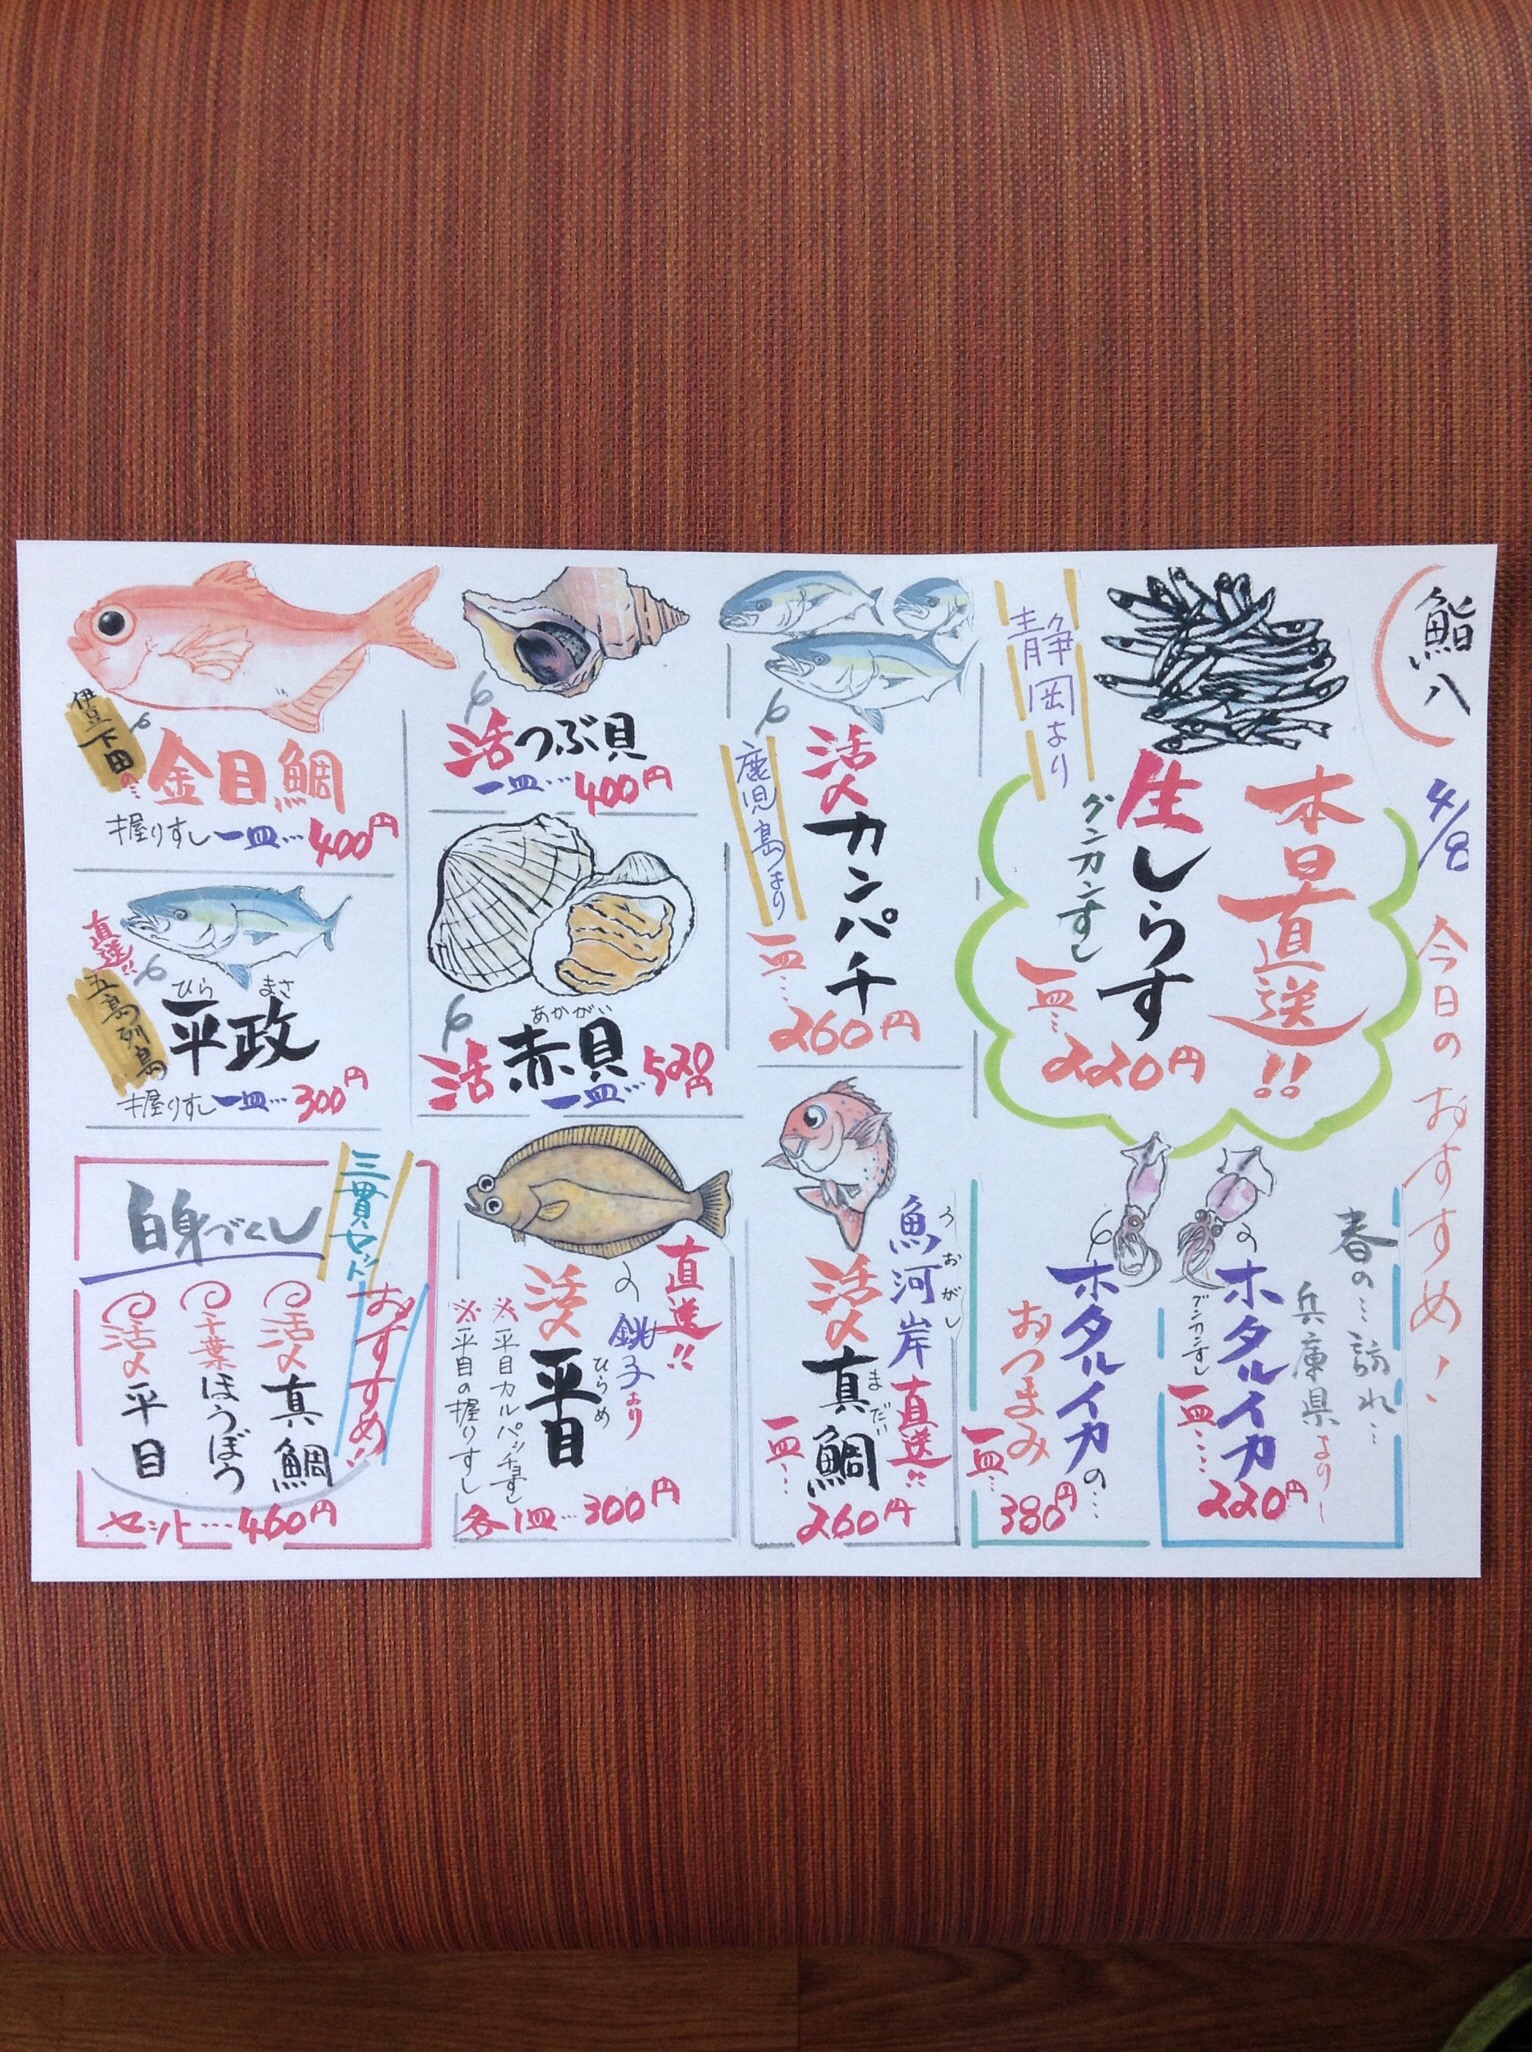 鮨八
4/8
今日のおすすめ!
本日直送!!
生しらす
グンカンすし
一皿…220円
静岡より
春の…訪れ…
兵庫県より
ホタルイカ
グンカンすし
一皿…220円
ホタルイカの…
おつまみ
一皿…380円
活〆カンパチ
鹿児島より
一皿…260円
魚河岸直送!!
うおがし
活〆真鯛
まだい
一皿…260円
活つぶ貝
一皿…400円
あかがい
活赤貝
一皿…520円
直送!!
銚子より
活〆平目
ひらめ
※平目カルパッチョすし
※平目の握りすし
各1皿…300円
伊豆下田の…
金目鯛
握りすし一皿…400円
直送!!
五島列島
ひらまさ
平政
握りすし一皿…300円
三貫セット
おすすめ!!
白身づくし
活〆真鯛
千葉ほうぼう
活〆平目
セット…460円